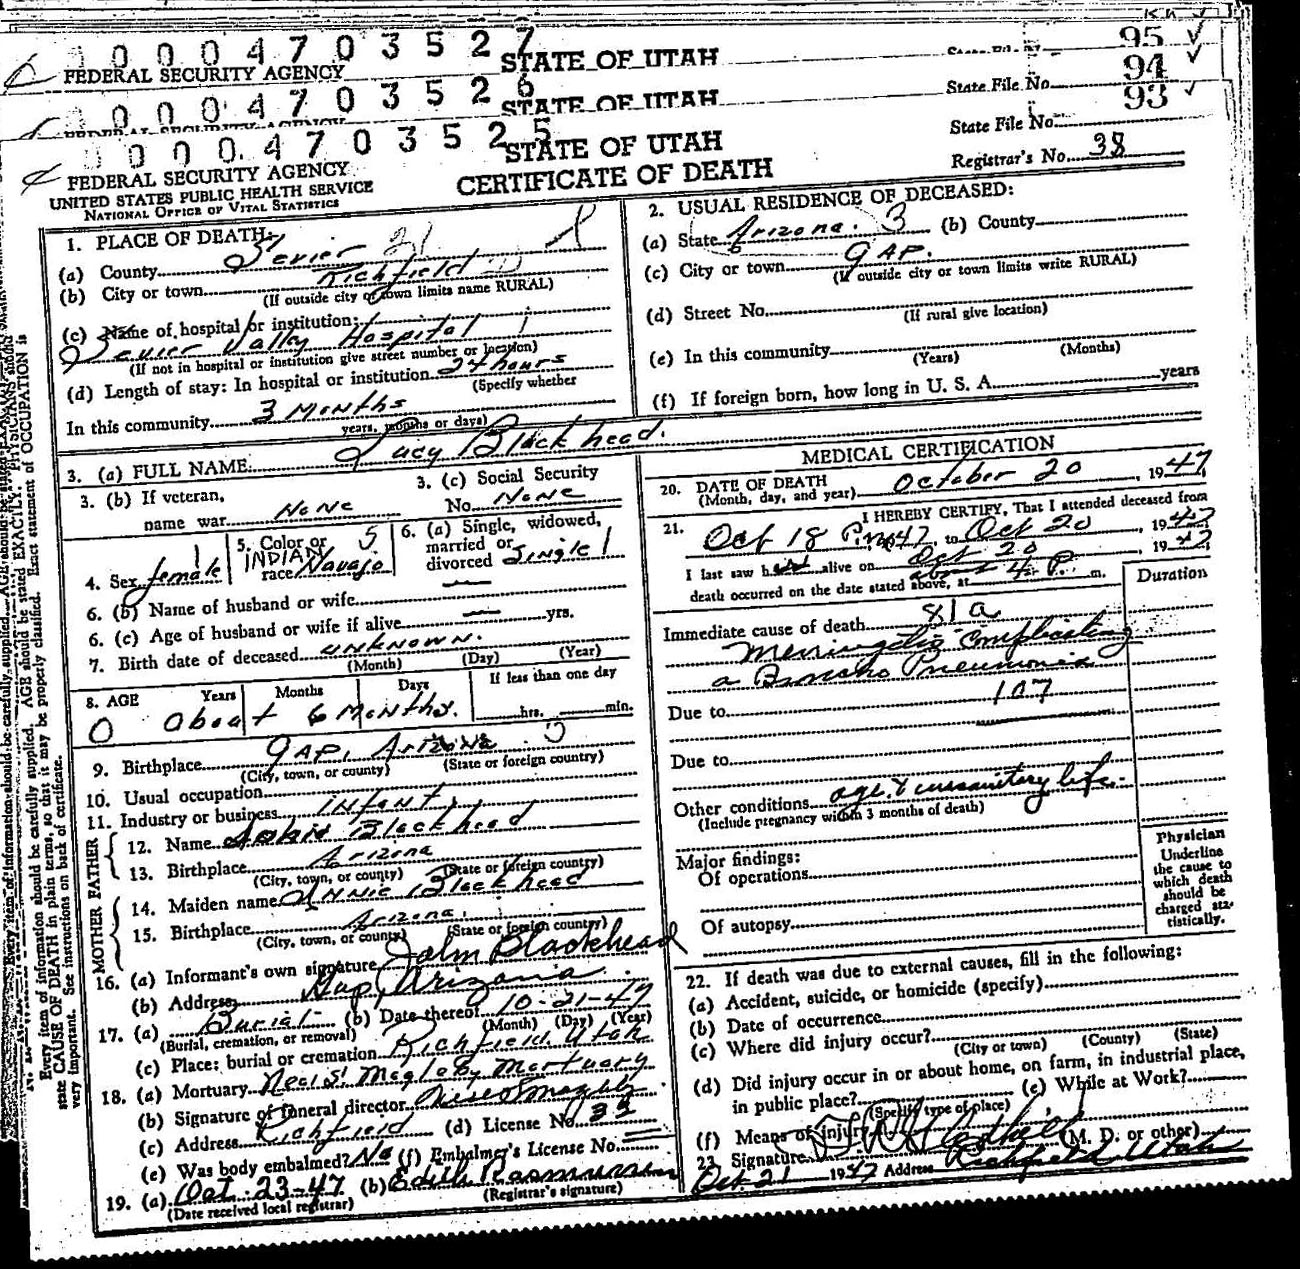 95 ✓
0 0 0 4 7 0 3 5 2 7
STATE OF UTAH
FEDERAL SECURITY AGENCY
94 ✓
0 0 0 4 7 0 3 5 2 6
STATE OF UTAH
State File No.
FEDERAL SECURITY AGENCY
93 ✓
0 0 0 4 7 0 3 5 2 5
STATE OF UTAH
State File No.
FEDERAL SECURITY AGENCY
CERTIFICATE OF DEATH
Registrar's No. 38
UNITED STATES PUBLIC HEALTH SERVICE
NATIONAL OFFICE OF VITAL STATISTICS
1. PLACE OF DEATH:
(a) County Sevier
(b) City or town Richfield
(If outside city or town limits name RURAL)
(c) Name of hospital or institution:
Sevier Valley Hospital
(If not in hospital or institution give street number or location)
(d) Length of stay: In hospital or institution 24 hours
(Specify whether
In this community 3 Months
years, months or days)
2. USUAL RESIDENCE OF DECEASED:
(a) State Arizona. 3 (b) County
(c) City or town GAP.
(If outside city or town limits write RURAL)
(d) Street No.
(If rural give location)
(e) In this community
(Years) (Months)
(f) If foreign born, how long in U. S. A. years
3. (a) FULL NAME: Lucy Blackhead.
3. (b) If veteran,
name war None
3. (c) Social Security
No. None
4. Sex female
5. Color or
race INDIAN Navajo 5
6. (a) Single, widowed,
married or
divorced Single
6. (b) Name of husband or wife —
6. (c) Age of husband or wife if alive — yrs.
7. Birth date of deceased unknown.
(Month) (Day) (Year)
8. AGE Years Months Days If less than one day
0 about 6 Months. hrs. min.
9. Birthplace GAP, Arizona
(City, town, or county) (State or foreign country)
10. Usual occupation
11. Industry or business infant
FATHER
12. Name Blackhead
13. Birthplace Arizona
(City, town, or county) (State or foreign country)
MOTHER
14. Maiden name Annie Blackhead
15. Birthplace Arizona.
(City, town, or county) (State or foreign country)
16. (a) Informant's own signature John Blackhead
(b) Address Gap, Arizona
17. (a) Burial (b) Date thereof 10-21-47
(Burial, cremation, or removal) (Month) (Day) (Year)
(c) Place: burial or cremation Richfield, Utah
18. (a) Mortuary Neal S. Magleby Mortuary
(b) Signature of funeral director
(c) Address Richfield (d) License No.
(e) Was body embalmed? No (f) Embalmer's License No.
19. (a) Oct. 23-47 (b) Edith Rasmussen
(Date received local registrar) (Registrar's signature)
MEDICAL CERTIFICATION
20. DATE OF DEATH
(Month, day, and year) October 20, 1947
21. I HEREBY CERTIFY, That I attended deceased from
Oct 18 P.M. 47, to Oct 20, 1947
I last saw her alive on Oct 20, 1947
death occurred on the date stated above, at about 4 P. m.
Duration
Immediate cause of death 81a
Meningitis complicating
a Broncho Pneumonia
Due to 107
Due to
Other conditions age & unsanitary life.
(Include pregnancy within 3 months of death)
Major findings:
Of operations
Of autopsy
Physician
Underline
the cause to
which death
should be
charged sta-
tistically.
22. If death was due to external causes, fill in the following:
(a) Accident, suicide, or homicide (specify)
(b) Date of occurrence
(c) Where did injury occur?
(City or town) (County) (State)
(d) Did injury occur in or about home, on farm, in industrial place,
in public place? (e) While at Work?
(Specify type of place)
(f) Means of injury
23. Signature (M. D. or other)
Oct. 21 1947 Address Richfield Utah
Every item of information should be carefully supplied. AGE should be stated EXACTLY. PHYSICIANS should
state CAUSE OF DEATH in plain terms, so that it may be properly classified. Exact statement of OCCUPATION is
very important. See instructions on back of certificate.